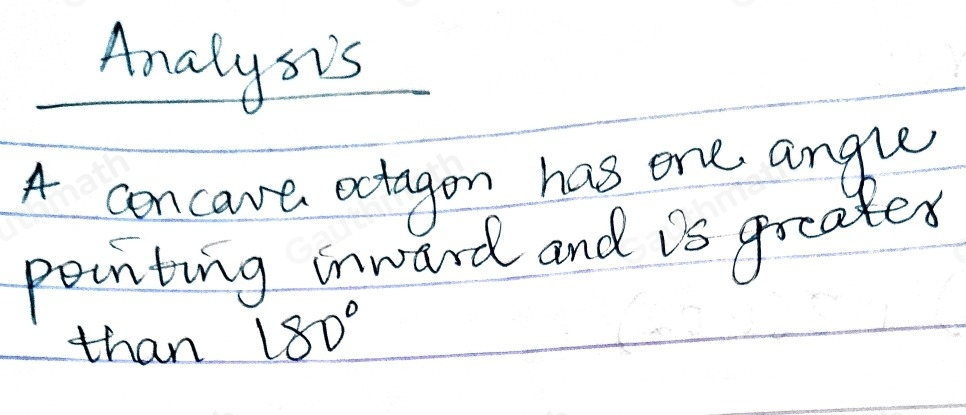 Analysis
A concave octagon has one angle
pointing inward and is greater
than 180°